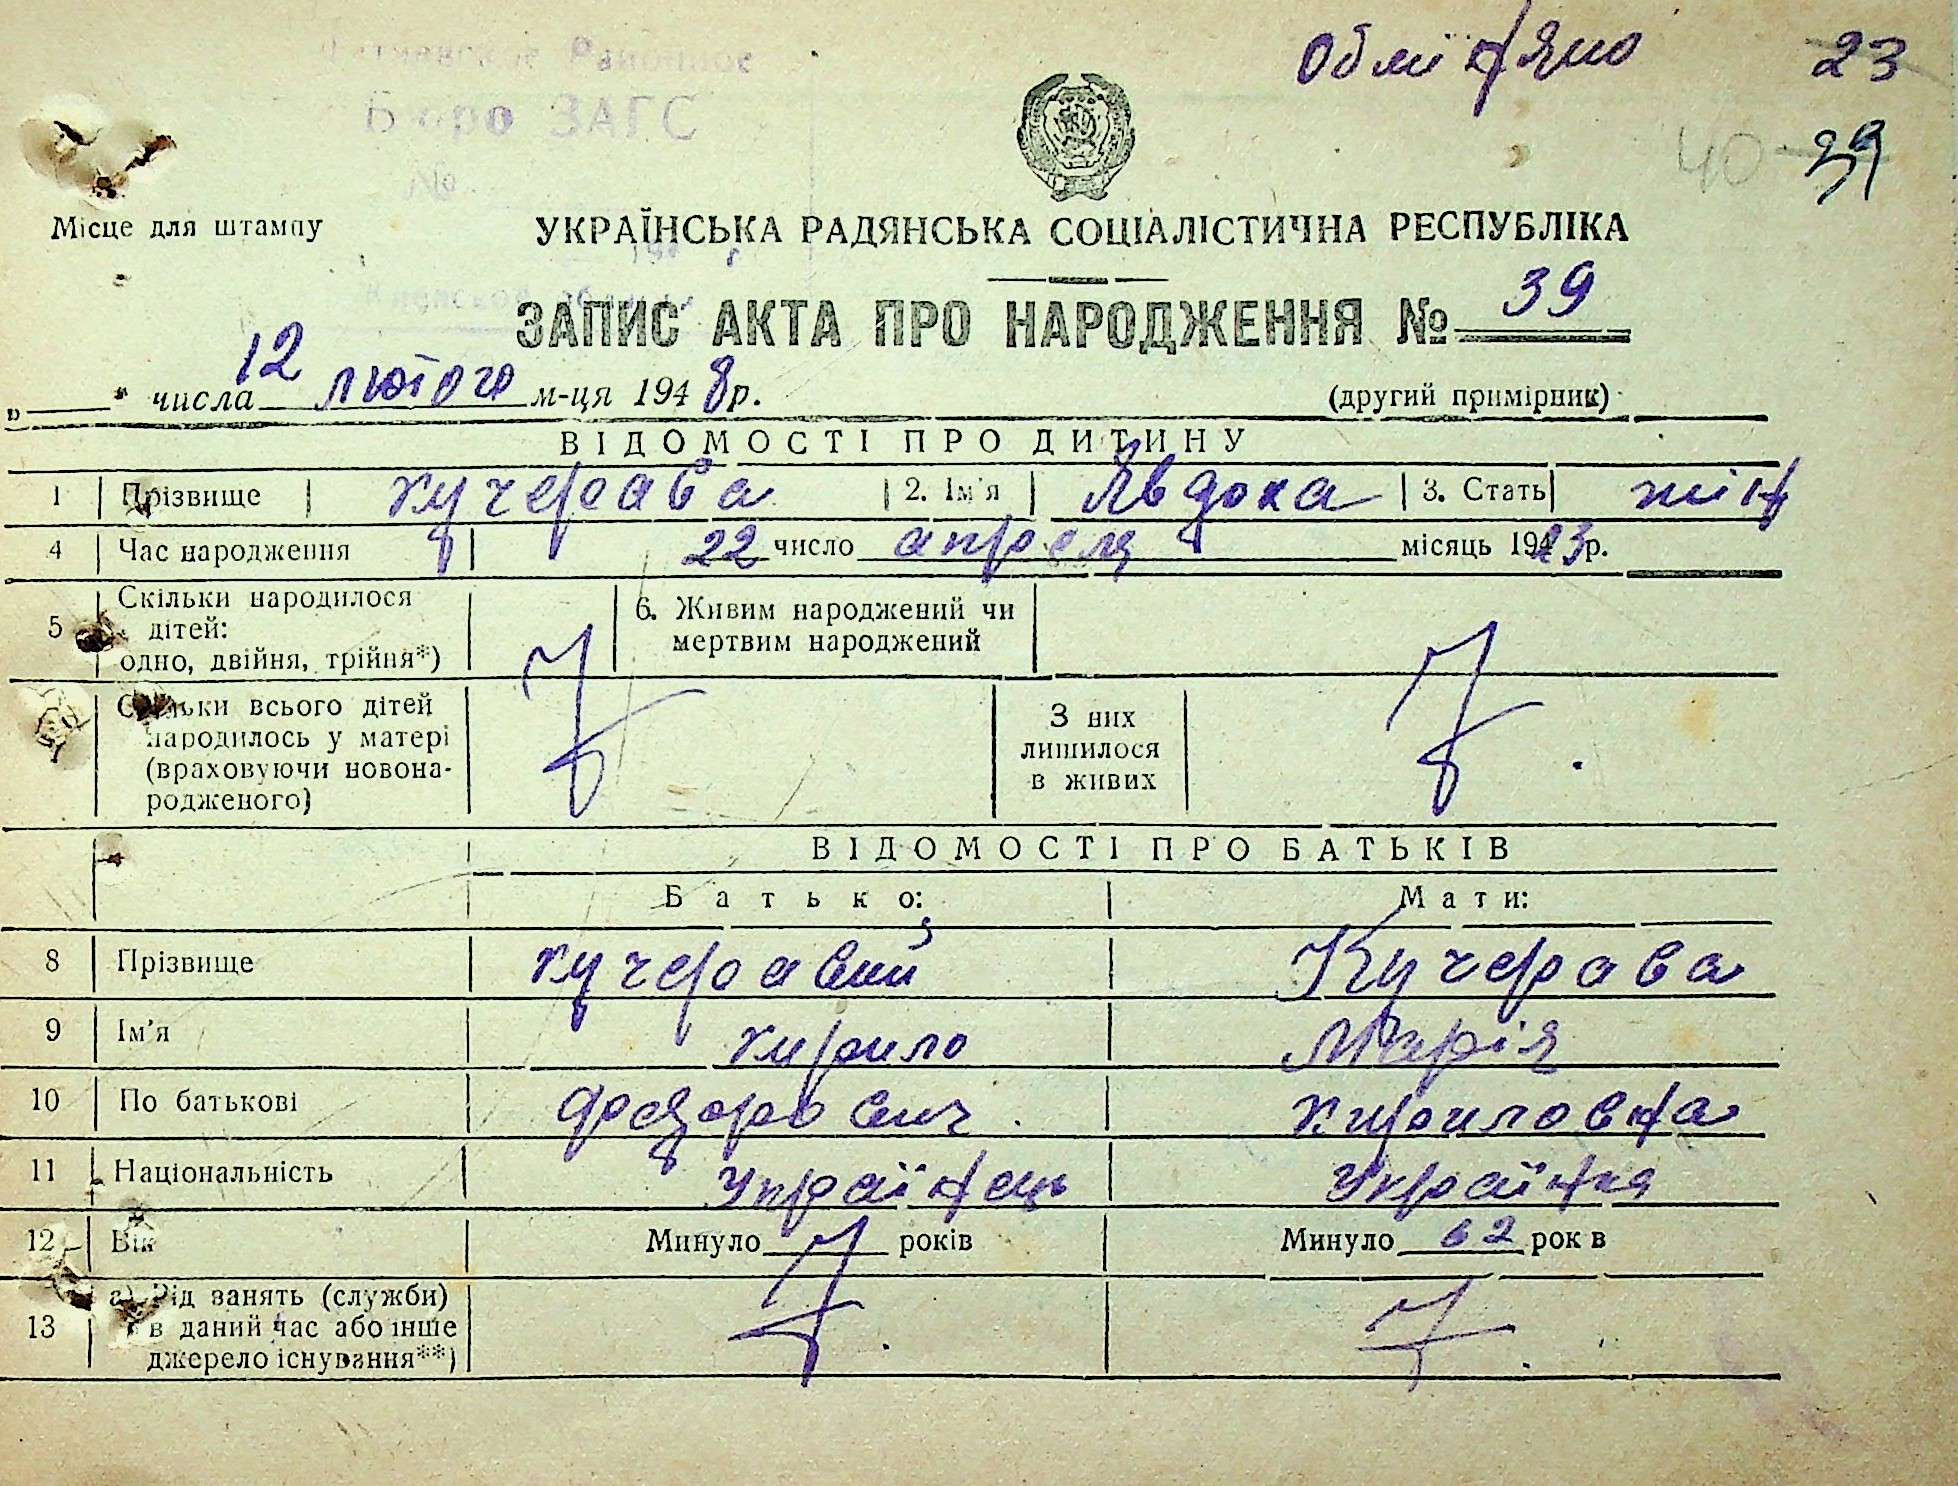 Районное
Обміняно 23
Бюро ЗАГС
№
40 39
Місце для штампу
УКРАЇНСЬКА РАДЯНСЬКА СОЦІАЛІСТИЧНА РЕСПУБЛІКА
ЗАПИС АКТА ПРО НАРОДЖЕННЯ № 39
„ “ числа 12 лютого м-ця 1948р.
(другий примірник)
ВІДОМОСТІ ПРО ДИТИНУ
1 Прізвище кучерава 2. Ім'я Явдока 3. Стать жін
4 Час народження 22 число апреля місяць 1923р.
5 Скільки народилося дітей: одно, двійня, трійня*) 6. Живим народжений чи мертвим народжений
Скільки всього дітей народилось у матері (враховуючи новонародженого) З них лишилося в живих
ВІДОМОСТІ ПРО БАТЬКІВ
Батько: Мати:
8 Прізвище кучеравий Кучерава
9 Ім'я кирило Марія
10 По батькові Федорович кириловна
11 Національність Українець Українка
12 Вік Минуло років Минуло 62 рок в
13 а) Рід занять (служби) в даний час або інше джерело існування**)